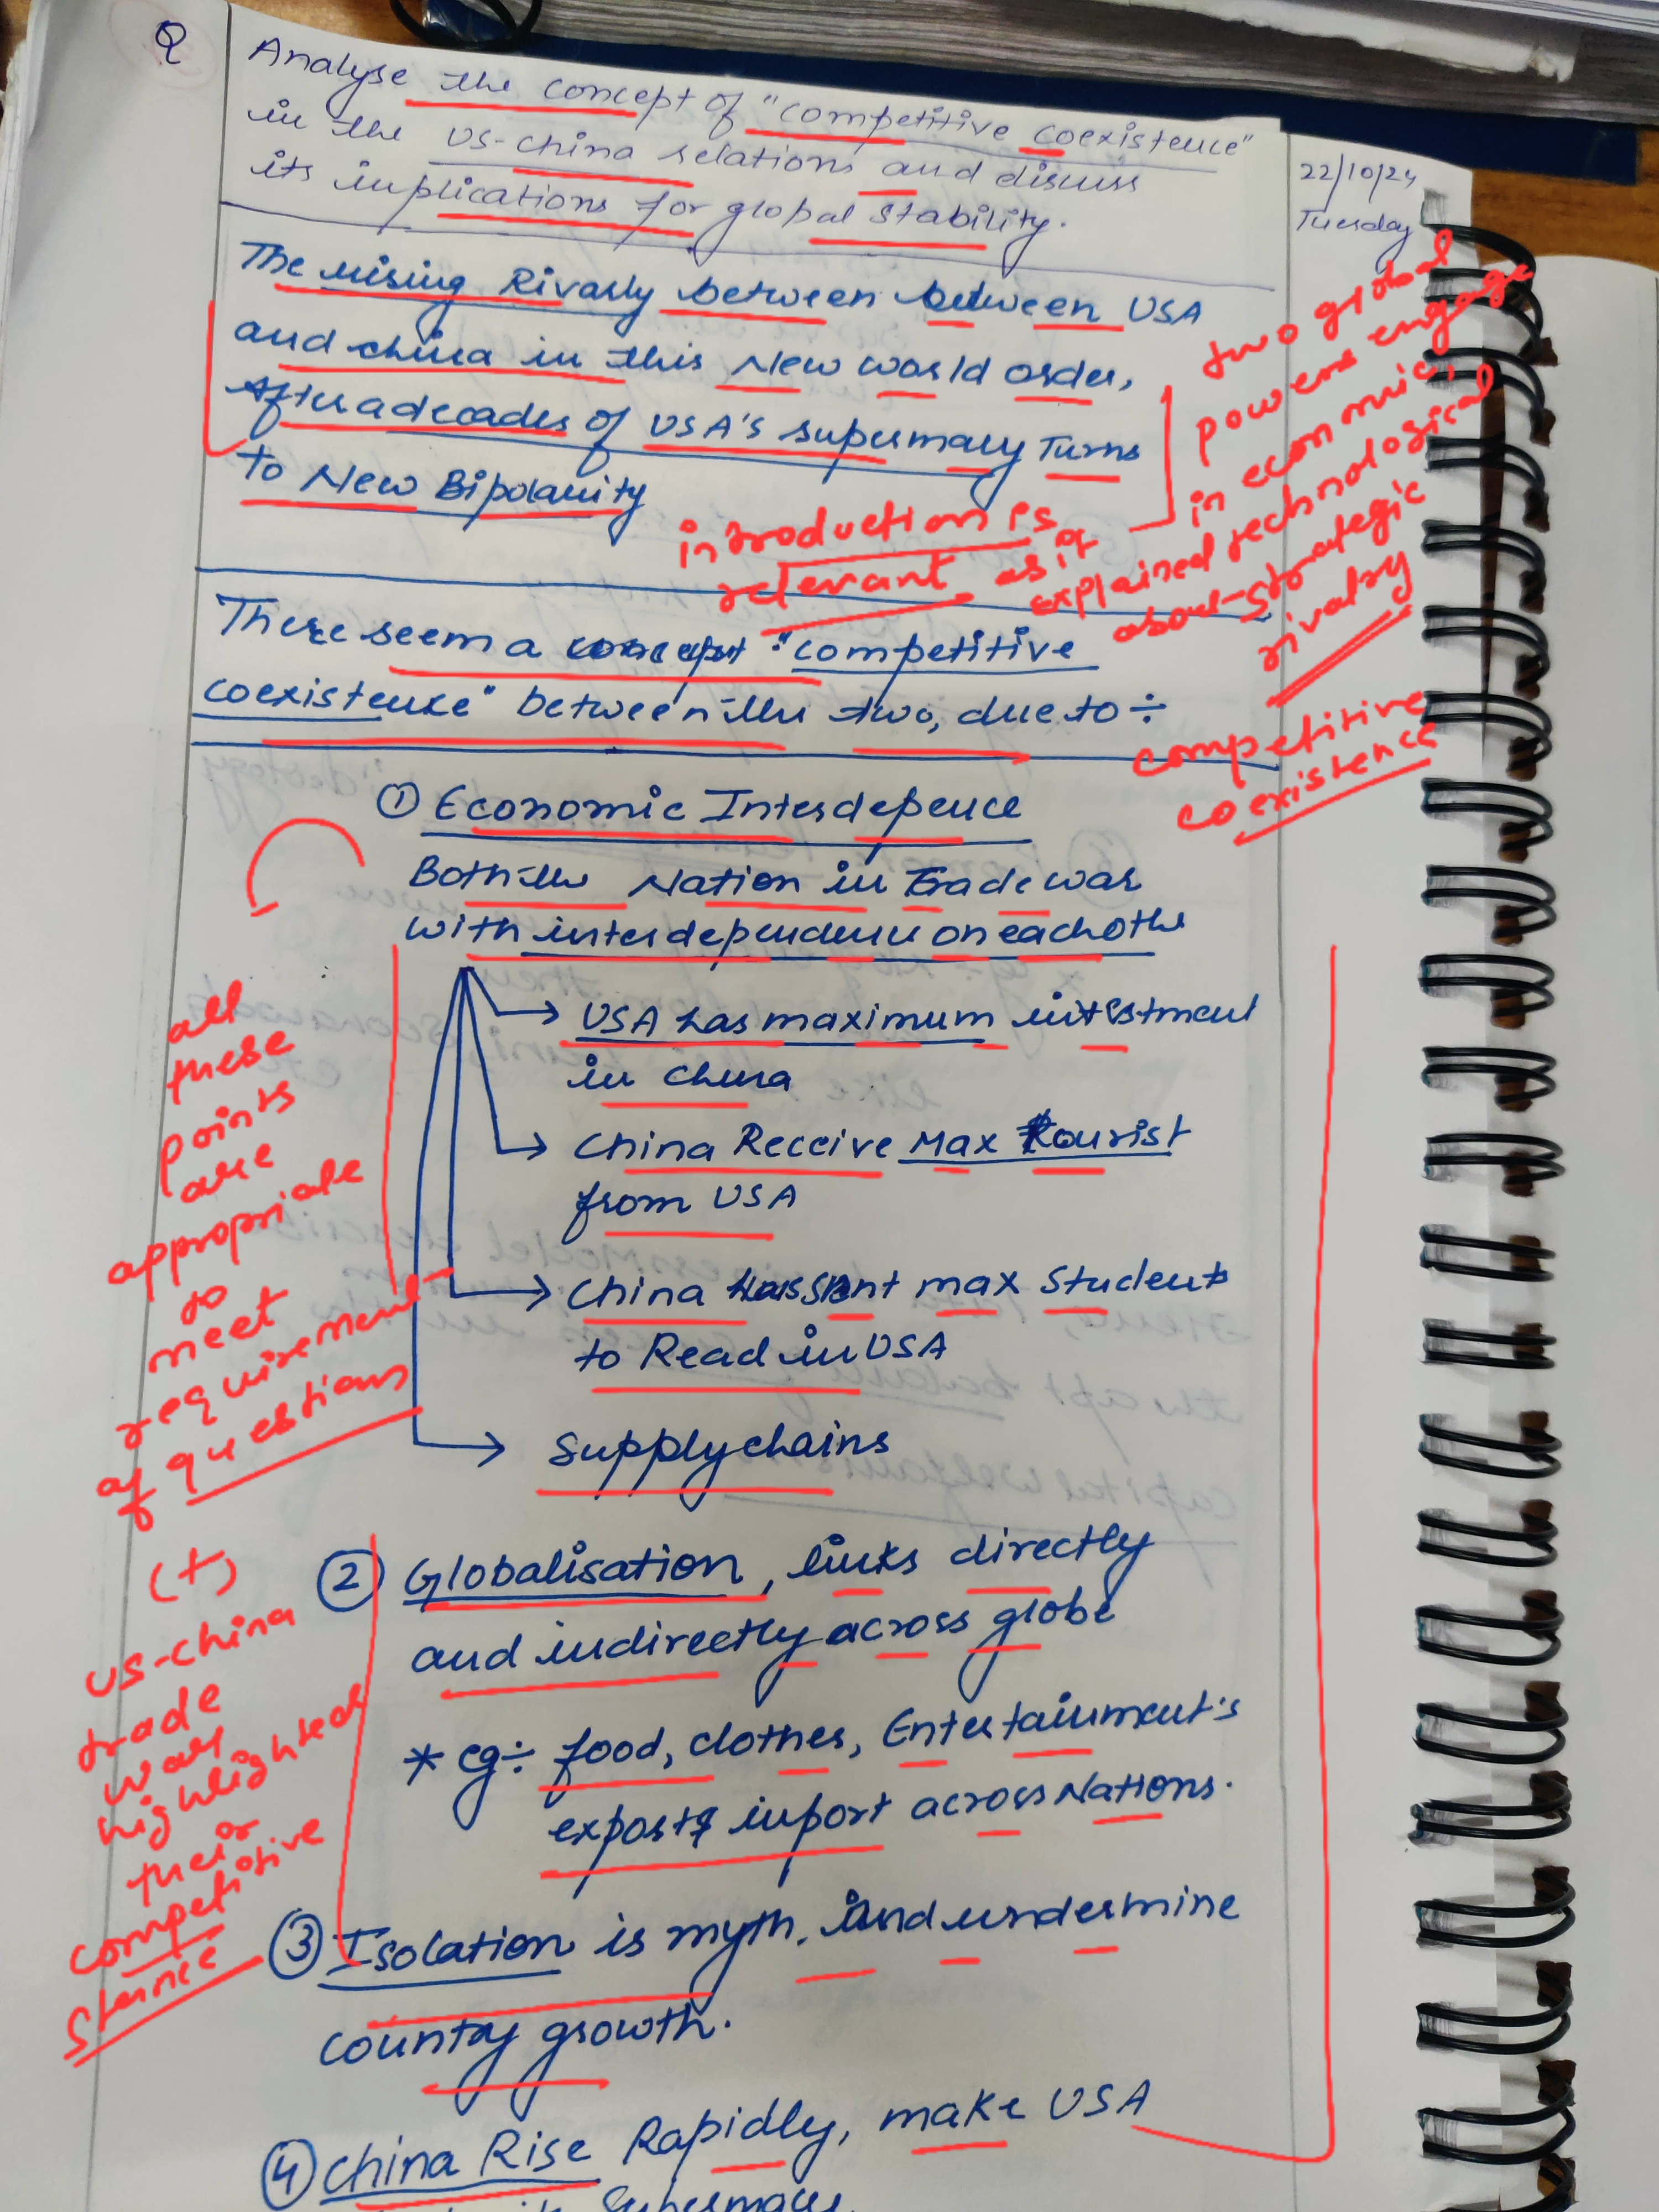 Q
Analyse the concept of "competitive coexistence"
in the US-China relations and discuss
its implications for global stability.
22/10/24
Tuesday
The Rising Rivarly between between USA
and china in this New world order,
After a decades of USA's supermacy Turns
to New Bipolarity
introduction is
relevant as if
two global
powers engage
in economic,
explained technological
strategic
rivalry
competitive
coexistence
There seem a concept "competitive
coexistence" between the two, due to ÷
① Economic Interdepence
Both the Nation in Trade war
with interdependence on each othe
→ USA has maximum
in China
→ China Receive Max Tourist
from USA
→ China has sent max Students
to Read in USA
→ Supply chains
all
these
points
are
appropriate
to
meet
requirement
of questions
(+)
US-China
trade
war
highlighted
their
competitive
stance
② Globalisation, links directly
and indirectly across globe
* eg ÷ food, clothes, Entertainment's
export & inport across Nations.
③ Isolation is myth, and undermine
country growth.
④ China Rise Rapidly, make USA
supermacy